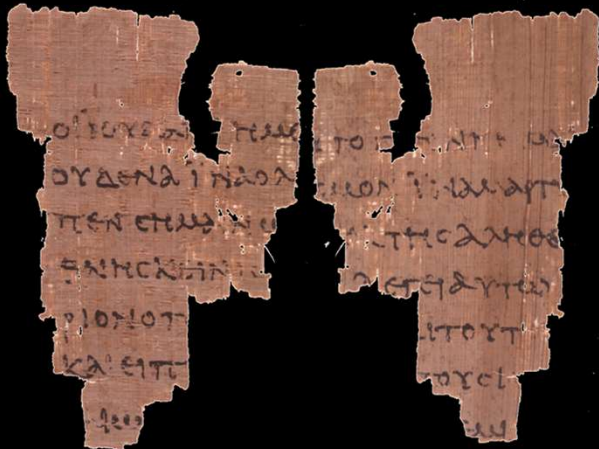 ΟΙ ΙΟΥΔΑΙ ΗΜΕ
ΟΥΔΕΝΑ ΙΝΑ Ο ΛΟ
ΠΕΝ ϹΗΜΑΙΝΩ
ΘΝΗϹΚΕΙΝ
ΡΙΟΝ Ο Π
ΚΑΙ ΕΙΠ
ΥΤΟ
ϹΜΟΝ ΙΝΑ ΜΑΡΤΥ
ΤΗϹ ΑΛΗΘΕ
ΛΕΓΕΙ ΑΥΤΩ
ΑΙ ΤΟΥΤ
ΤΟΥϹ Ι